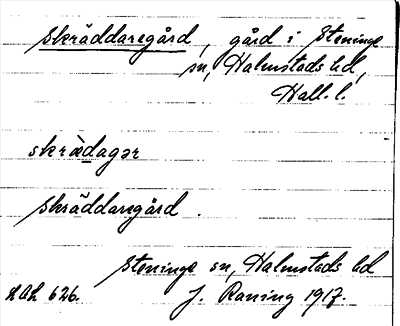 Skräddaregård, gård i Steninge
sn, Halmstads hd,
Hall. l.
skræ̀dagər
Skräddaregård.
Steninge sn, Halmstads hd
LAL 626. J. Raning 1917.